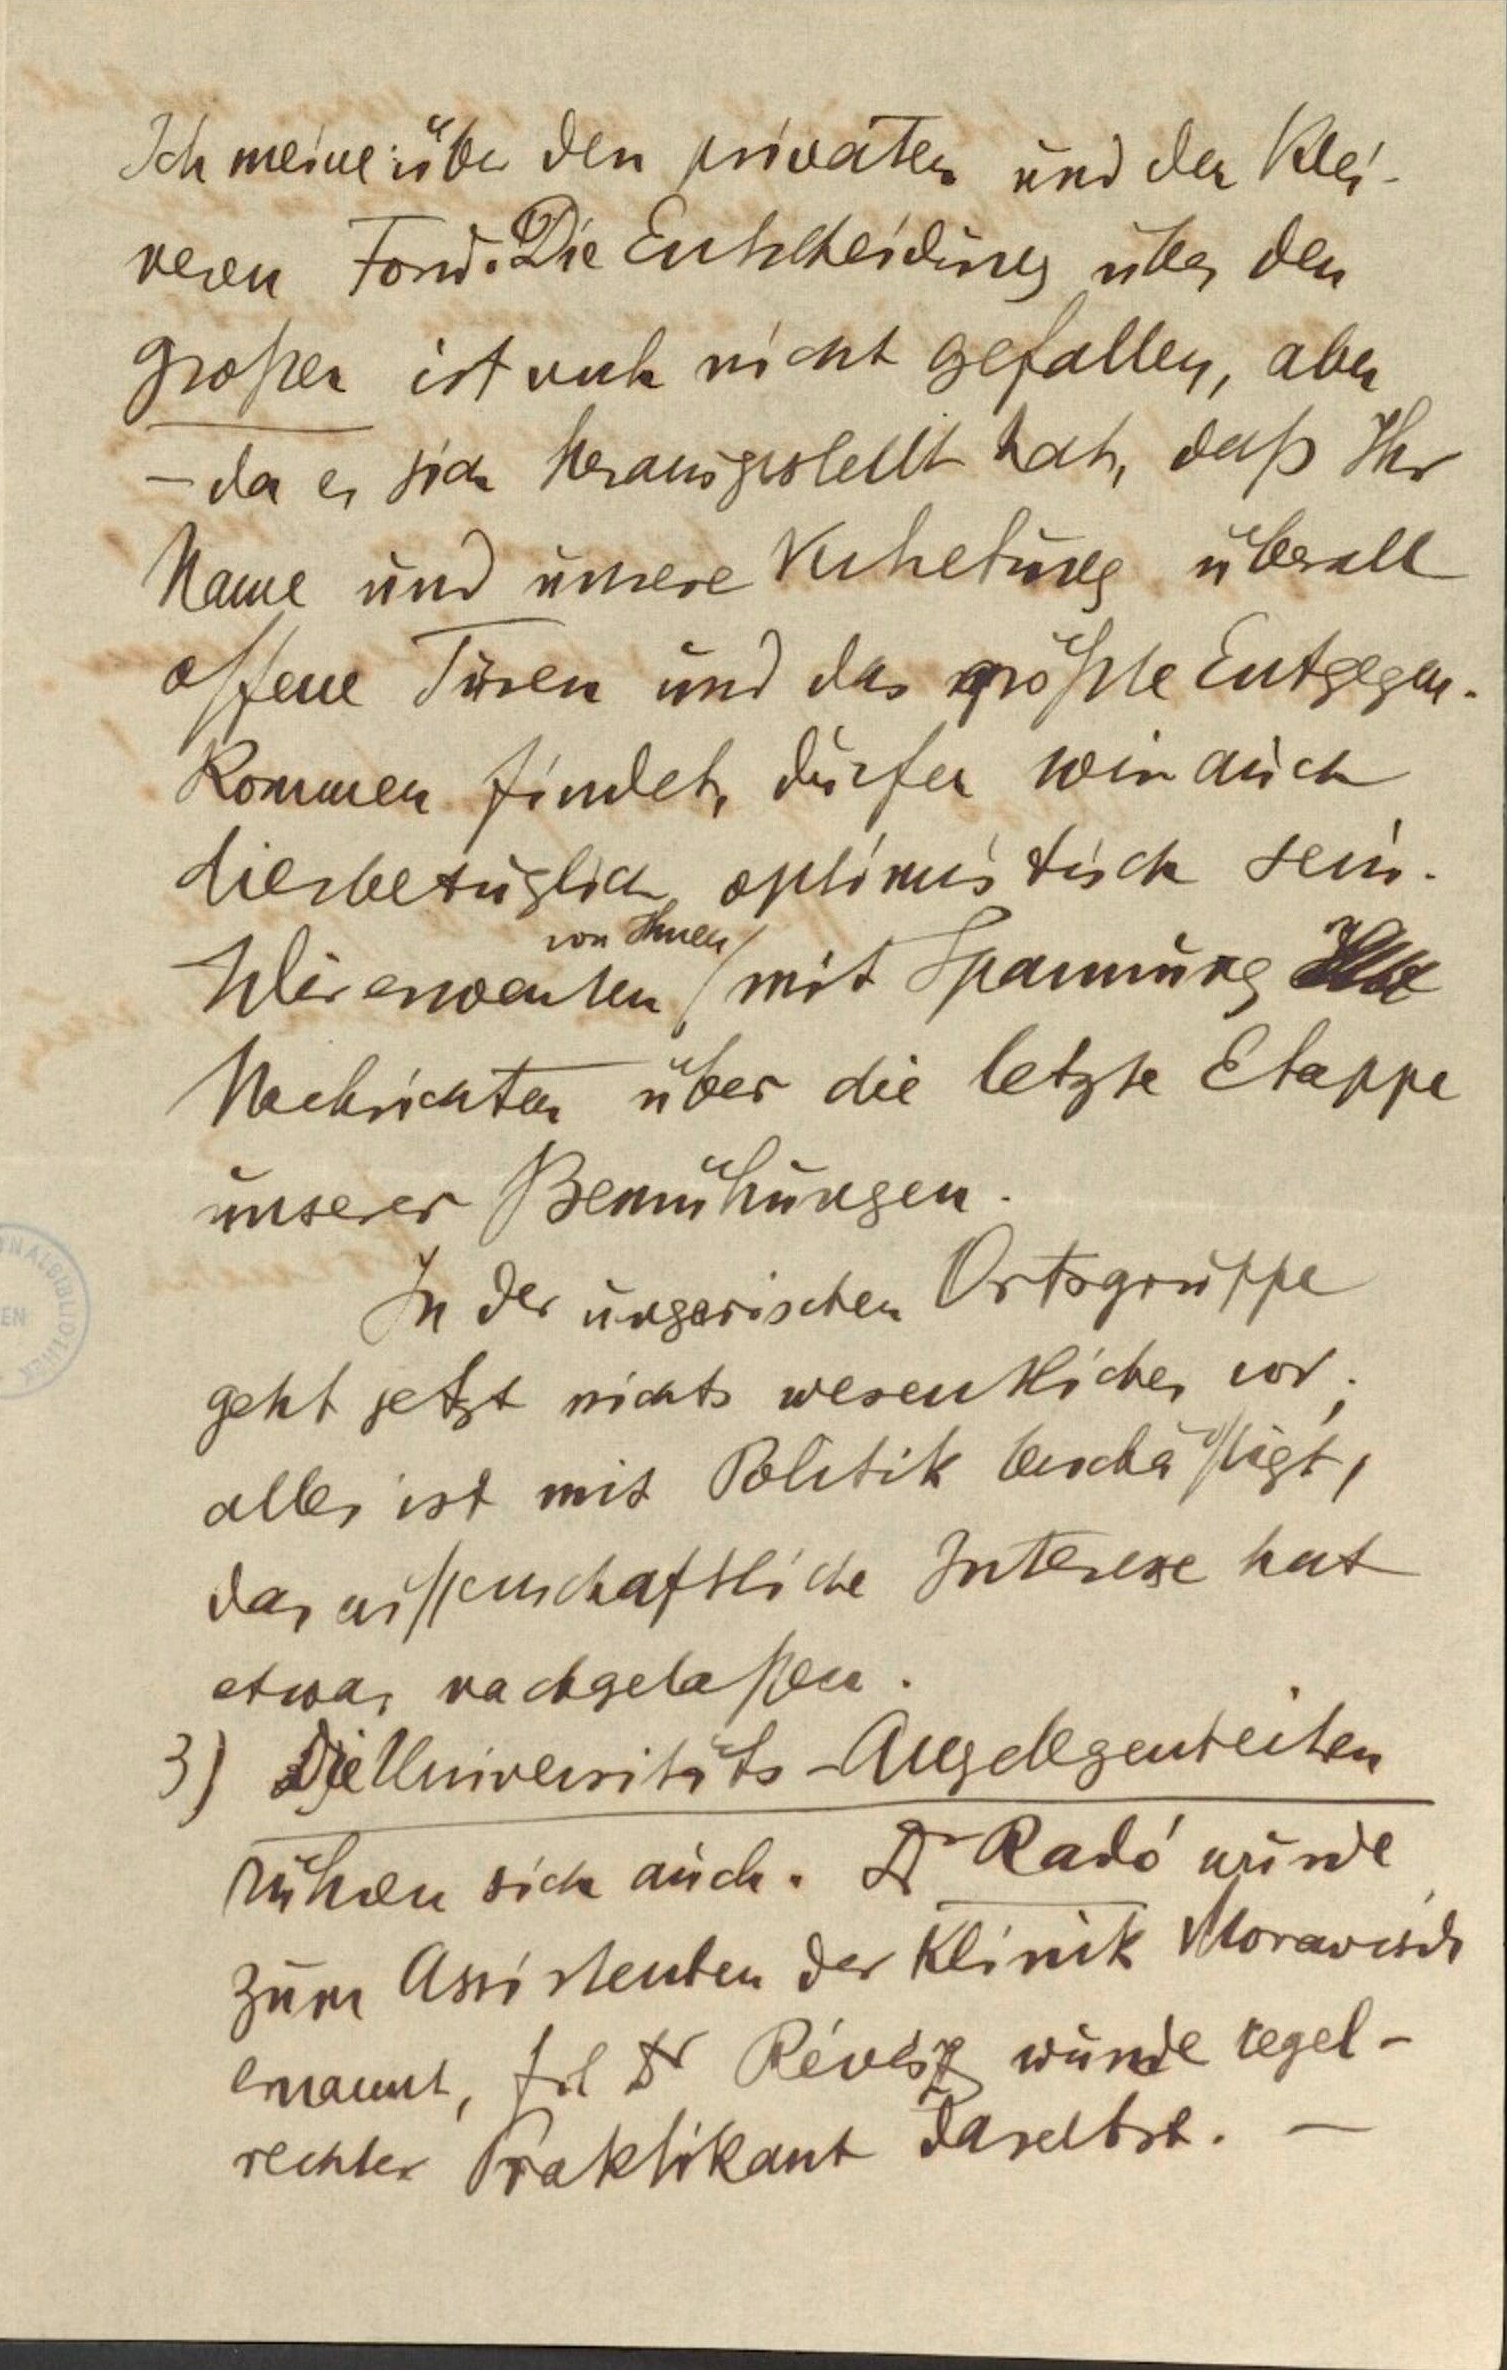 Ich meine: über den privaten und den klei-
neren Fond. Die Entscheidung über den
großen ist noch nicht gefallen, aber
– da es sich herausgestellt hat, daß Ihr
Name und unsere Vertretung überall
offene Türen und das größte Entgegen-
kommen findet, dürfen wir auch
diesbezüglich optimistisch sein.
von Ihnen
Wir erwarten mit Spannung
Nachrichten über die letzte Etappe
unserer Bemühungen.
In der ungarischen Ortsgruppe
geht jetzt nichts wesentliches vor;
alles ist mit Politik beschäftigt,
das wissenschaftliche Interesse hat
etwas nachgelaßen.
3) Die Universitäts-Angelegenheiten
rühren sich auch. Dr Radó wurde
zum Assistenten der Klinik Moravcsik
ernannt, Frl Dr Révész wurde regel-
rechter Praktikant daselbst. –